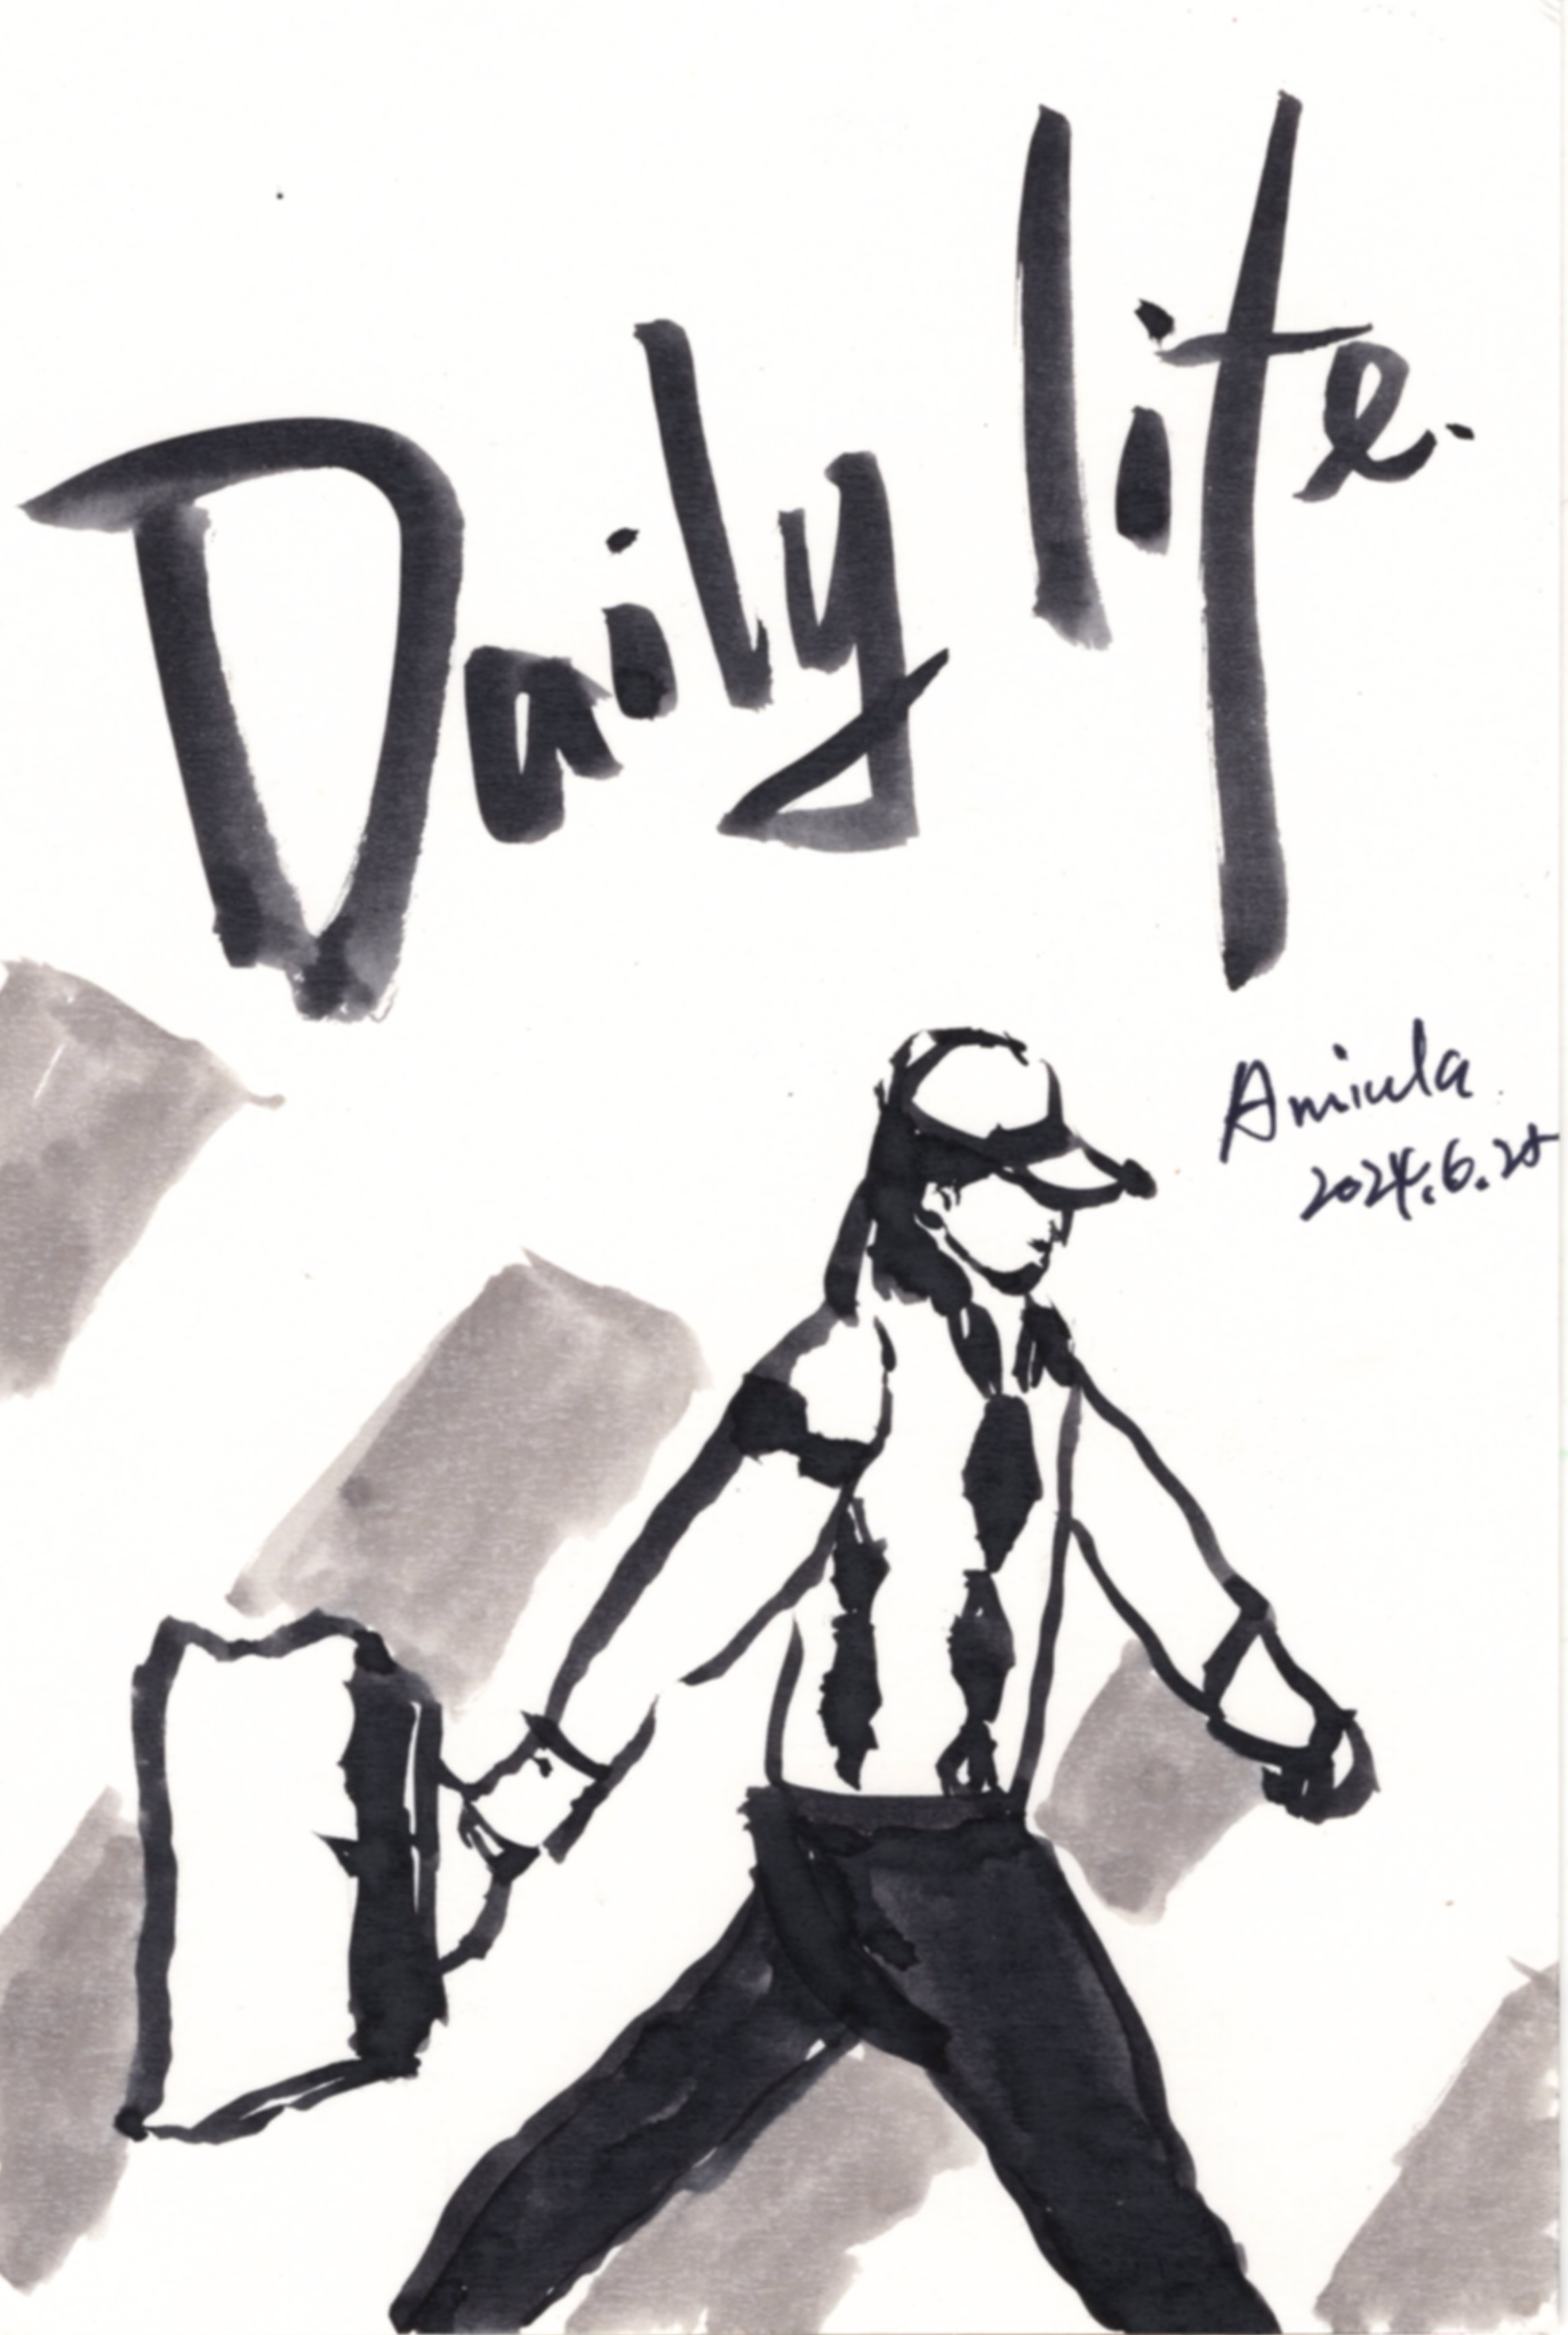 Daily life.
Amiula
2024.6.28